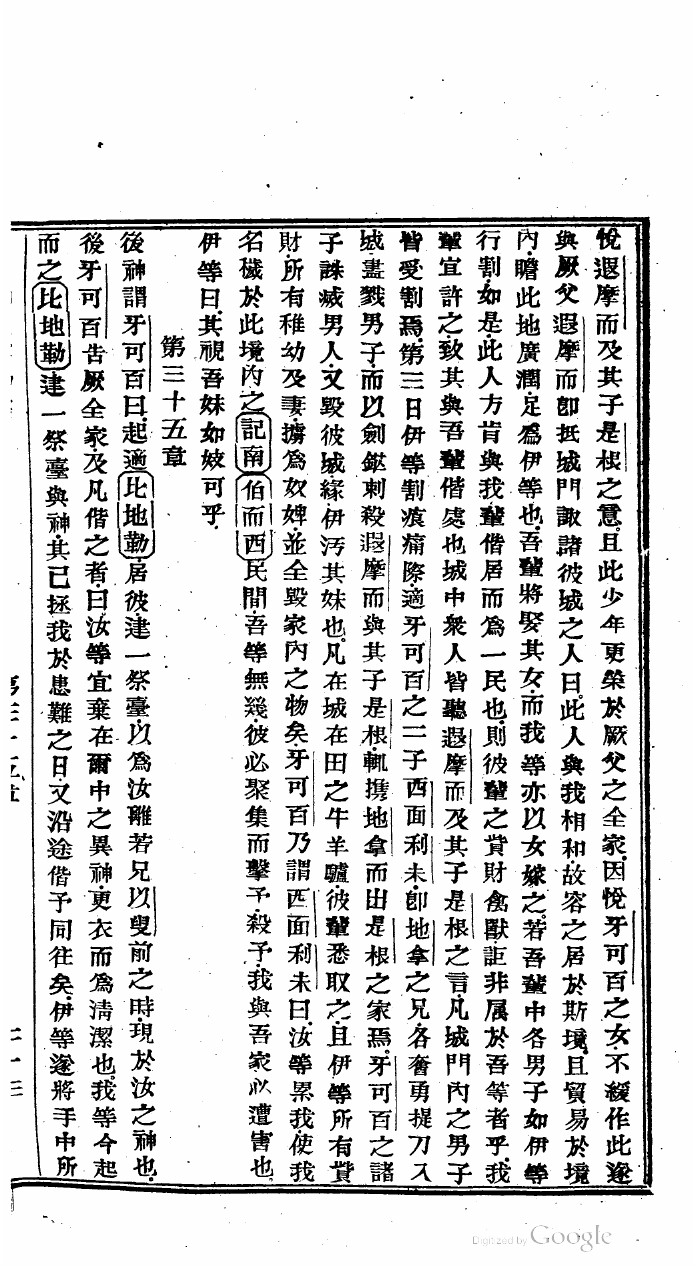 悅遐摩而及其子是根之意且此少年更榮於厥父之全家因悅牙可百之女不緩作此遂
與厥父遐摩而卽抵城門諏諸彼城之人曰此人與我相和故容之居於斯境且貿易於境
內瞻此地廣濶足爲伊等也吾輩將娶其女而我等亦以女嫁之若吾輩中各男子如伊等
行割如是此人方肯與我輩偕居而爲一民也則彼輩之貨財禽獸詎非属於吾等者乎我
輩宜許之致其與吾輩偕處也城中衆人皆聽遐摩而及其子是根之言凡城門內之男子
皆受割焉第三日伊等割痕痛際適牙可百之二子西面利未卽地拿之兄各奮勇提刀入
城盡戮男子而以劍鋩刺殺遐摩而與其子是根輒携地拿而出是根之家焉牙可百之諸
子誅滅男人又毀彼城緣伊汚其妹也凡在城在田之牛羊驢彼輩悉取之且伊等所有貨
財所有稚幼及妻擄爲奴婢並全毀家內之物矣牙可百乃謂西面利未曰汝等累我使我
名穢於此境內之記南伯而西民間吾等無幾彼必聚集而擊予殺予我與吾家必遭害也
伊等曰其視吾妹如妓可乎
第三十五章
後神謂牙可百曰起適比地勒居彼建一祭臺以爲汝離若兄以叟前之時現於汝之神也
後牙可百告厥全家及凡偕之者曰汝等宜棄在爾中之異神更衣而爲清潔也我等今起
而之比地勒建一祭臺與神其已拯我於患難之日又沿途偕予同往矣伊等遂將手中所
Digitized by Google